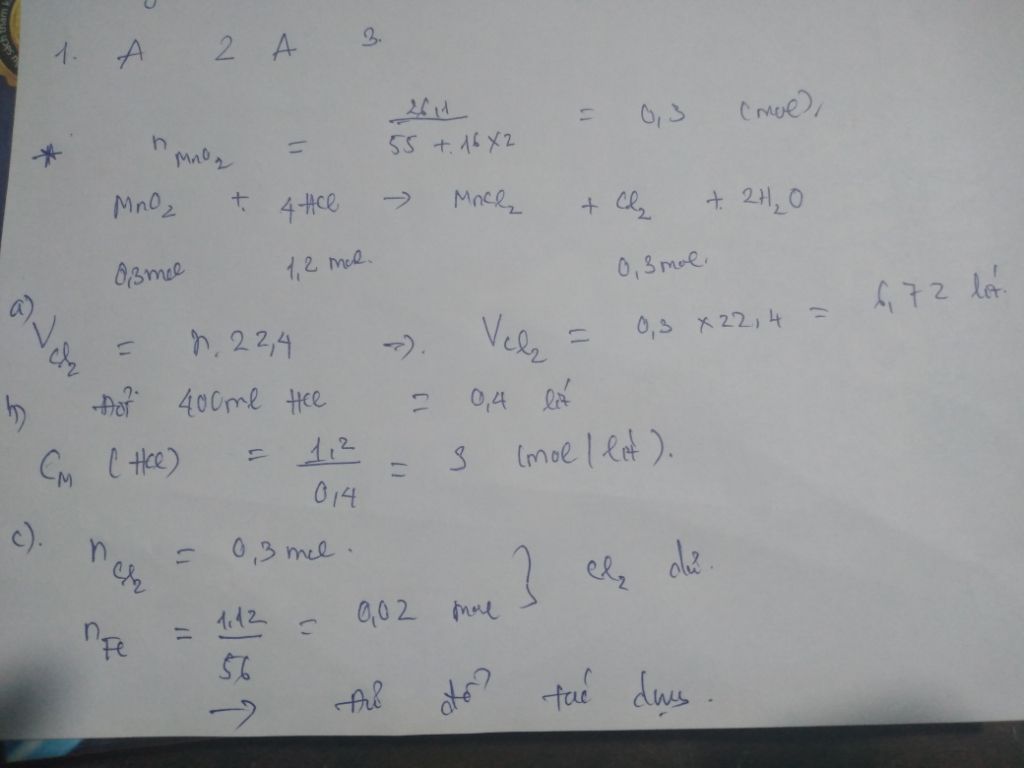 1. A 2 A 3.
* n MnO2 = 26,1 / 55 + 16 x 2 = 0,3 (mol),
MnO2 + 4HCl → MnCl2 + Cl2 + 2H2O
0,3 mol 1,2 mol. 0,3 mol.
a) VCl2 = n. 22,4 → VCl2 = 0,3 x 22,4 = 6,72 lít.
b) Đổi 400ml HCl = 0,4 lít
CM (HCl) = 1,2 / 0,4 = 3 (mol / lít).
c). nCl2 = 0,3 mol. } Cl2 dư.
nFe = 1,12 / 56 = 0,02 mol
→ đủ để tác dụng.